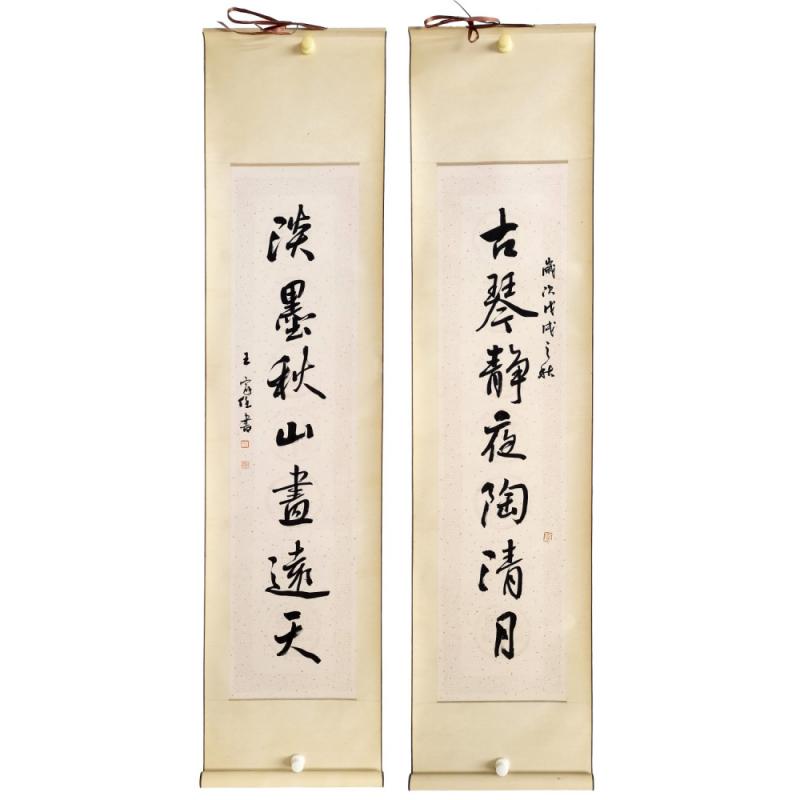 歲次戊戌之秋
古琴静夜陶清月
淡墨秋山畫遠天
王家佳書